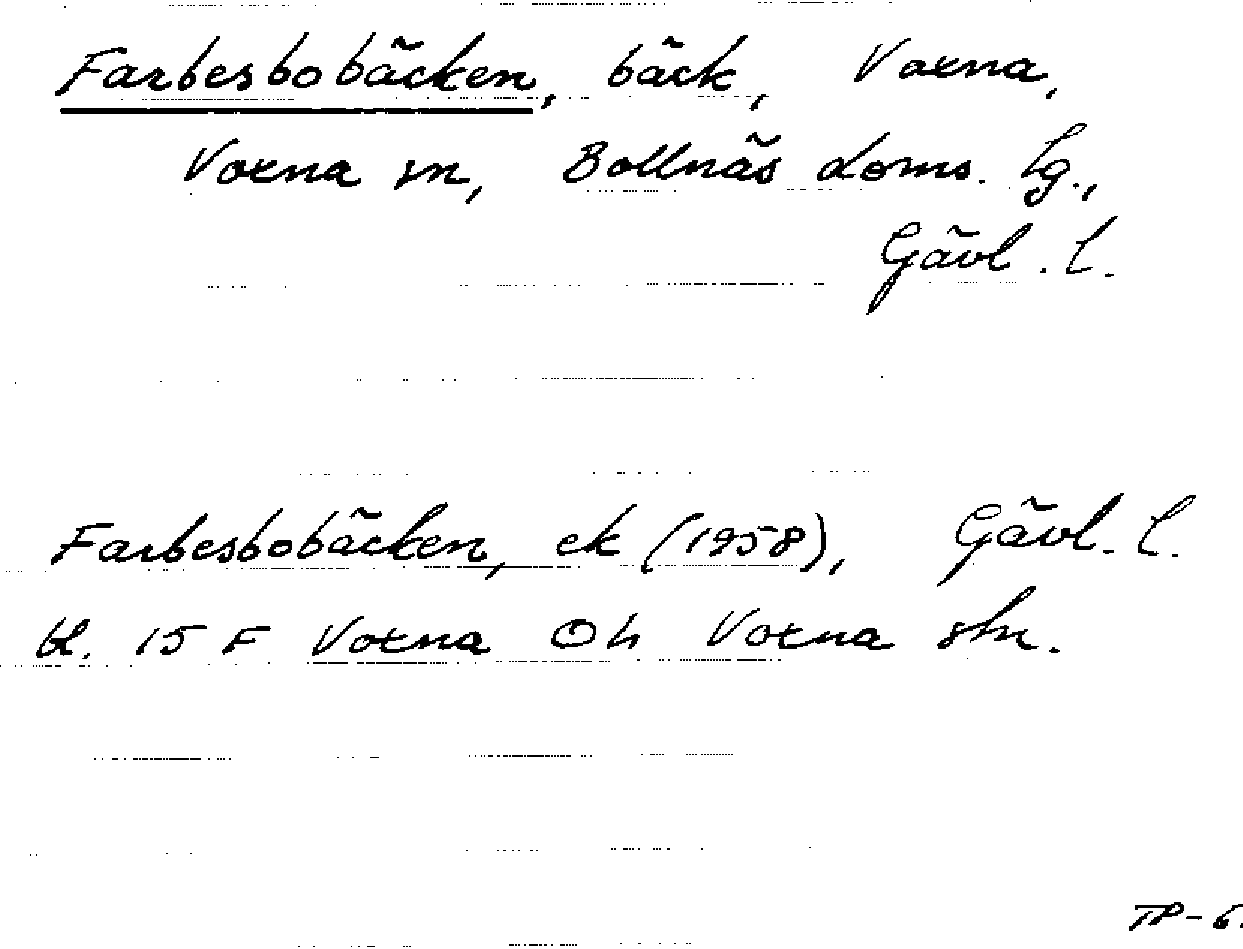 Farbesbobäcken, bäck, Voxna,
Voxna sn, Bollnäs doms. tg.,
Gävl. l.
Farbesbobäcken, ek (1958), Gävl. l.
bl. 15 F Voxna Oh Voxna stn.
TP-6.